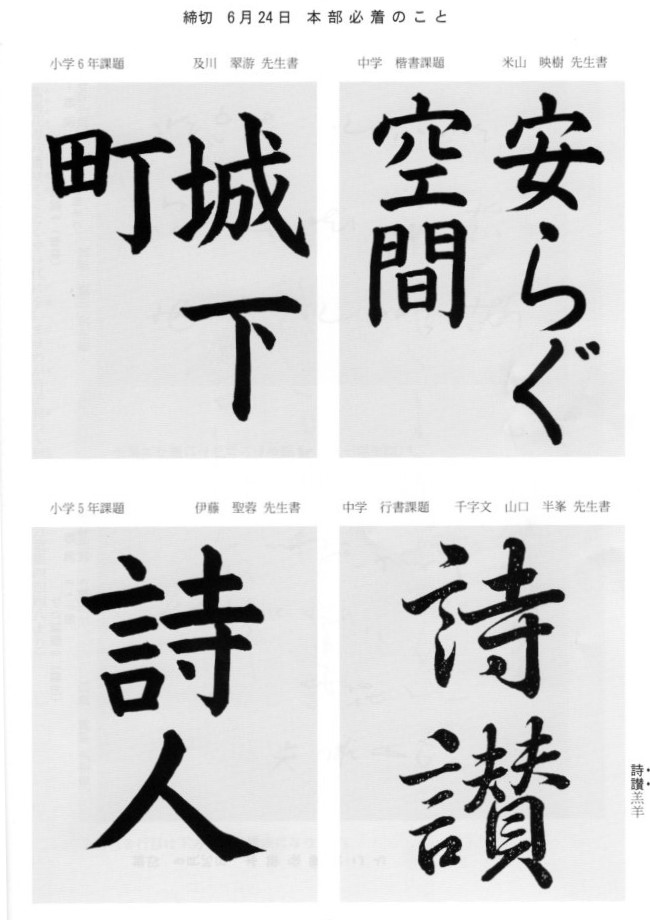 締切 6月24日 本部必着のこと
小学6年課題 及川 翠游 先生書
城下
町
中学 楷書課題 米山 映樹 先生書
安らぐ
空間
小学5年課題 伊藤 聖蓉 先生書
詩人
中学 行書課題 千字文 山口 半峯 先生書
詩讃
詩讃羔羊